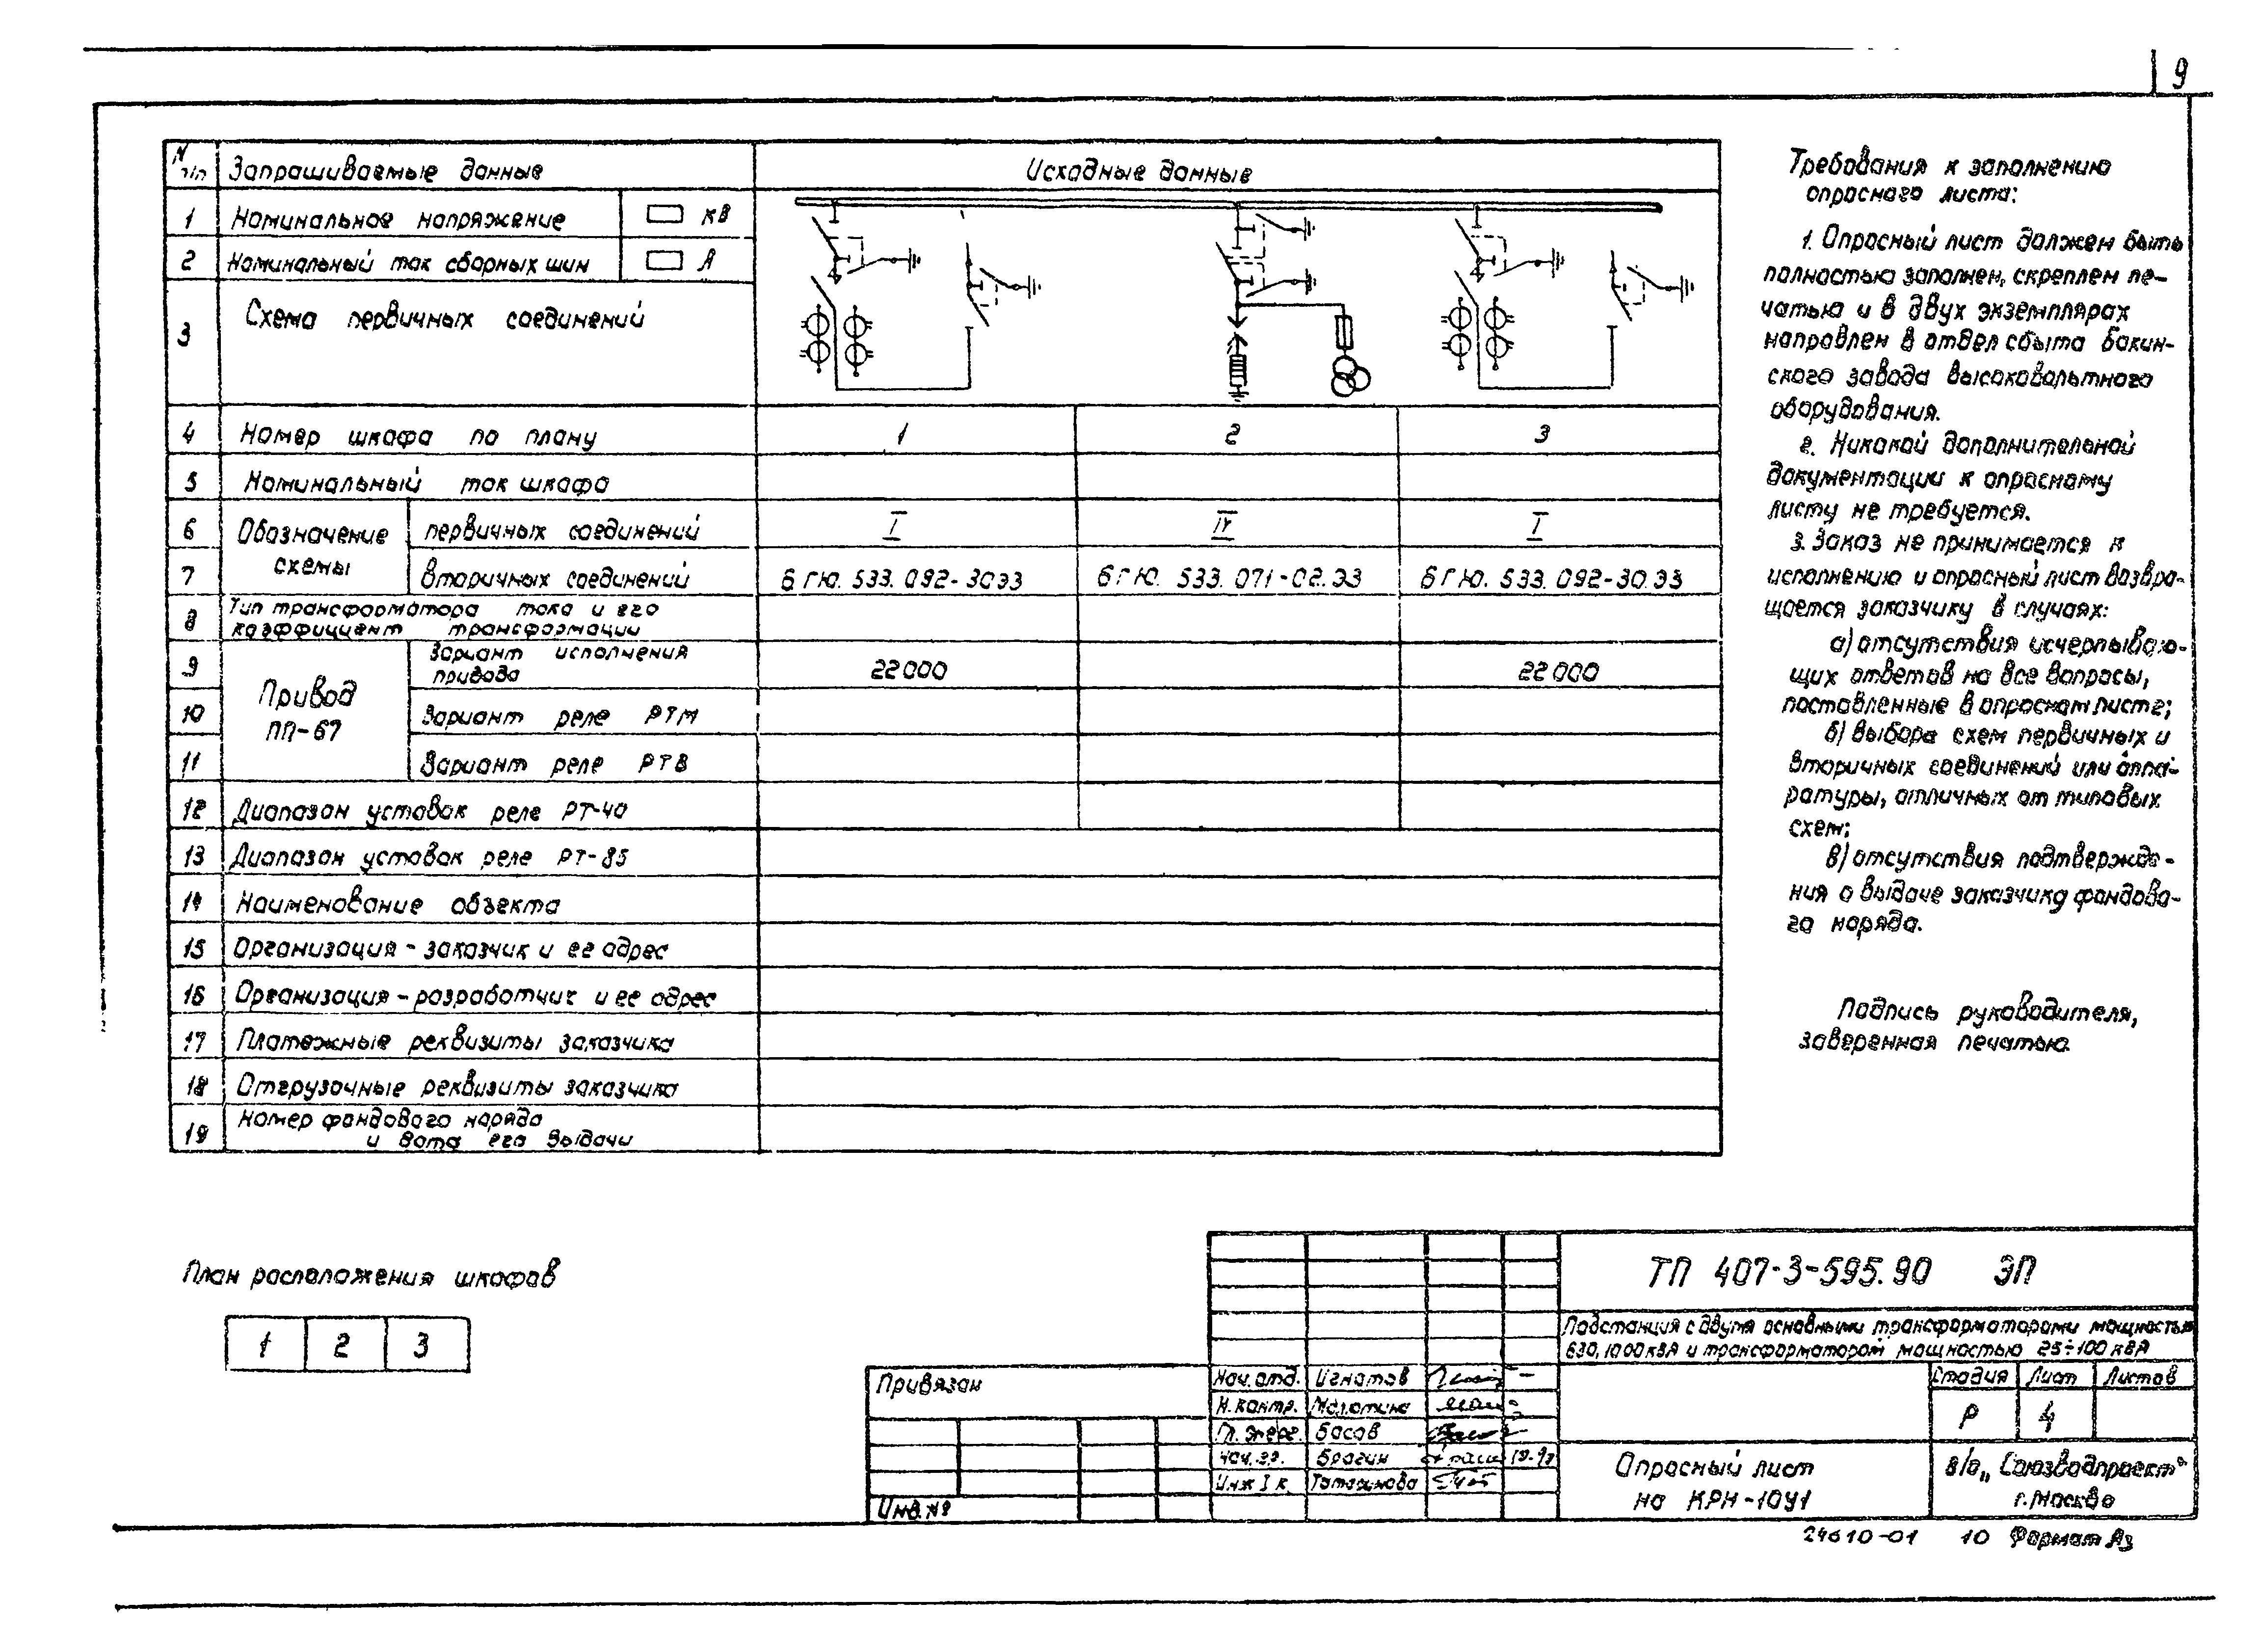 9
N п/п Запрашиваемые данные Исходные данные
1 Номинальное напряжение кВ
2 Номинальный ток сборных шин А
3 Схема первичных соединений
4 Номер шкафа по плану 1 2 3
5 Номинальный ток шкафа
Обозначение схемы
6 первичных соединений I IV I
7 вторичных соединений 6ГЮ.533.092-30ЭЗ 6ГЮ.533.071-02.ЭЗ 6ГЮ.533.092-30.ЭЗ
8 Тип трансформатора тока и его
коэффициент трансформации
Привод
ПП-67
9 Вариант исполнения
привода 22000 22000
10 Вариант реле РТМ
11 Вариант реле РТВ
12 Диапазон уставок реле РТ-40
13 Диапазон уставок реле РТ-85
14 Наименование объекта
15 Организация - заказчик и ее адрес
16 Организация - разработчик и ее адрес
17 Платежные реквизиты заказчика
18 Отгрузочные реквизиты заказчика
19 Номер фондового наряда
и дата его выдачи
Требования к заполнению
опросного листа:
1. Опросный лист должен быть
полностью заполнен, скреплен пе-
чатью и в двух экземплярах
направлен в отдел сбыта Бакин-
ского завода высоковольтного
оборудования.
2. Никакой дополнительной
документации к опросному
листу не требуется.
3. Заказ не принимается к
исполнению и опросный лист возвра-
щается заказчику в случаях:
а) отсутствия исчерпываю-
щих ответов на все вопросы,
поставленные в опросном листе;
б) выбора схем первичных и
вторичных соединений или аппа-
ратуры, отличных от типовых
схем;
в) отсутствия подтвержде-
ния о выдаче заказчику фондово-
го наряда.
Подпись руководителя,
заверенная печатью.
План расположения шкафов
1 2 3
ТП 407-3-595.90 ЭП
Подстанция с двумя основными трансформаторами мощностью
630, 1000 кВА и трансформатором мощностью 25÷100 кВА
Привязан
Инв. №
Нач. отд. Игнатов
Н. контр. Малютина
Гл. энерг. Басов
Нач. гр. Брагин
Инж I к. Татаринова
Стадия Лист Листов
Р 4
Опросный лист
на КРН-10У1
В/о „Союзводпроект"
г. Москва
24610-01 10 Формат А3